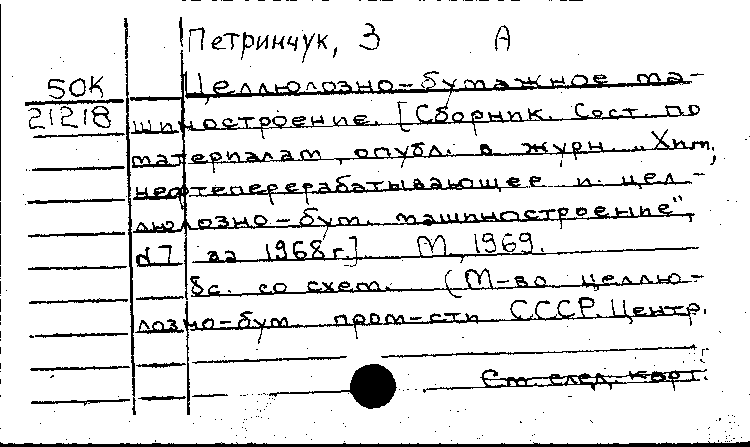 Петринчук, З А
50К Целлюлозно-бумажное ма-
21218 шиностроение. [Сборник. Сост. по
материалам, опубл. в журн. „Хим,
нефтеперерабатывающее и цел-
люлозно-бум. машиностроение",
№7 за 1968 г.] М., 1969.
8с. со схем. (М-во целлю-
лозно-бум. пром-сти СССР. Центр.
См. след. карт.